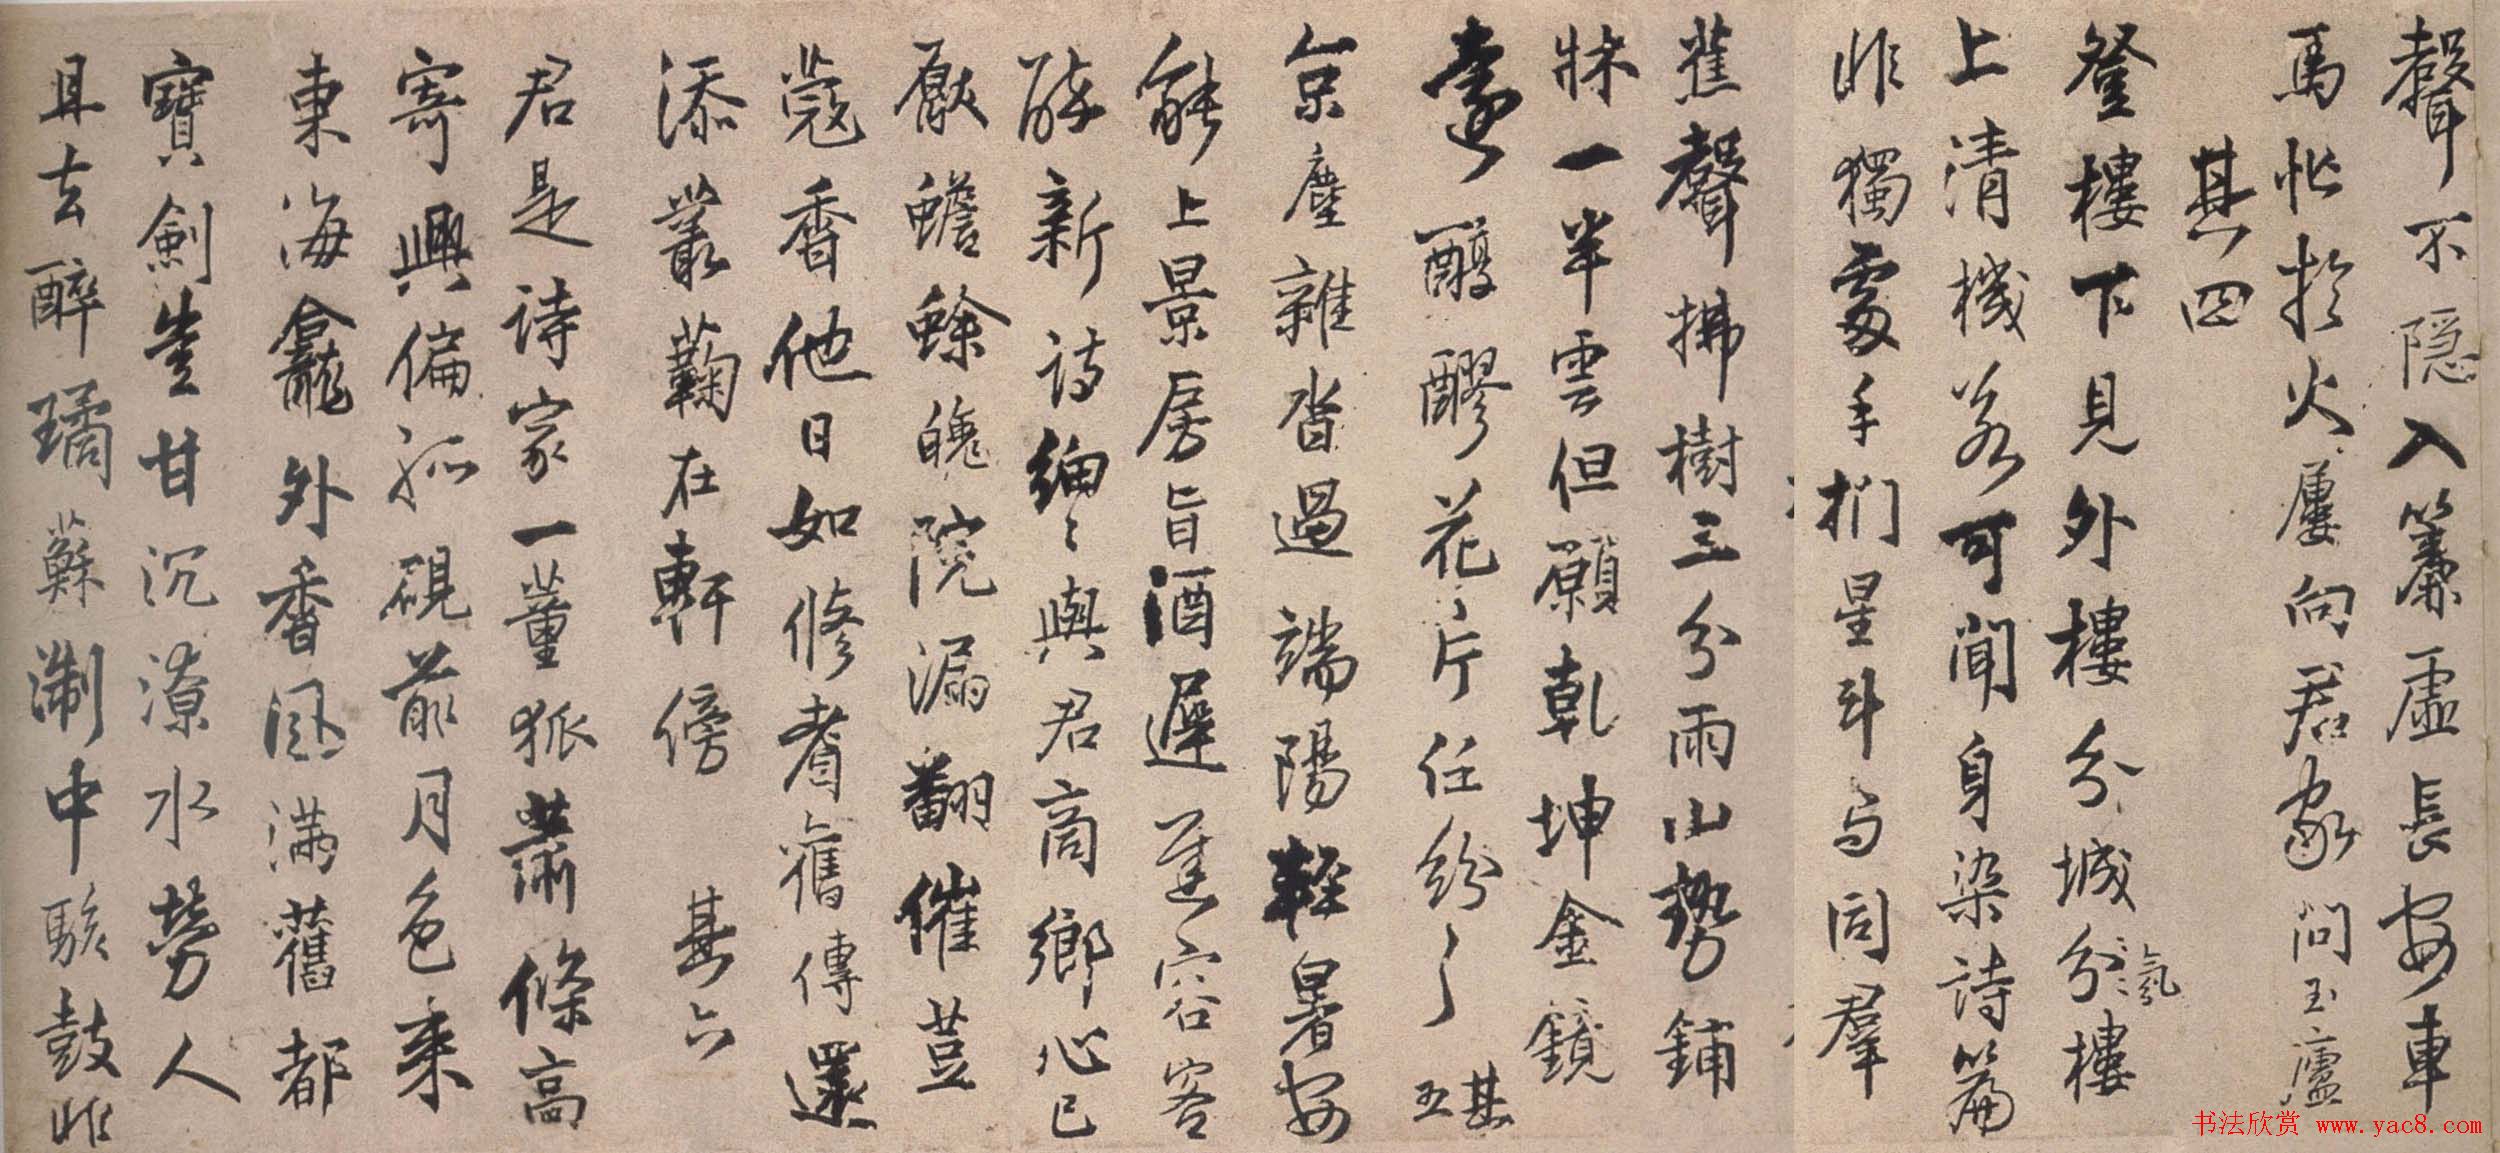 聲不隱入簾虛長安車
馬悵於火屢向君家問玉廬
其四
登樓下見外樓分城分樓
氣
上清機若可聞身染詩篇
非獨處手捫星斗与同羣
蕉聲拂樹三分雨山勢鋪
牀一半雲但願乾坤金鏡
裏醇醪花片任紛〻
其五
京塵雜沓過端陽輕暑安
能上景房旨酒遲遲容客
醉新詩細〻與君商鄉心已
厭蟾蜍魄院漏翻催荳
蔻香他日如修耆舊傳還
添叢鞠在軒傍 其六
君是詩家一董狐蕭條高
寄興偏孤硯前月色來
東海龕外香風满舊都
寶劍生甘沉潦水勞人
且去醉璚蘇淛中駭鼓非
书法欣赏 www.yac8.com